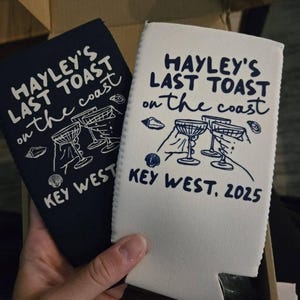 HAYLEY'S
LAST TOAST
on the coast
KEY WEST
HAYLEY'S
LAST TOAST
on the coast
KEY WEST, 2025